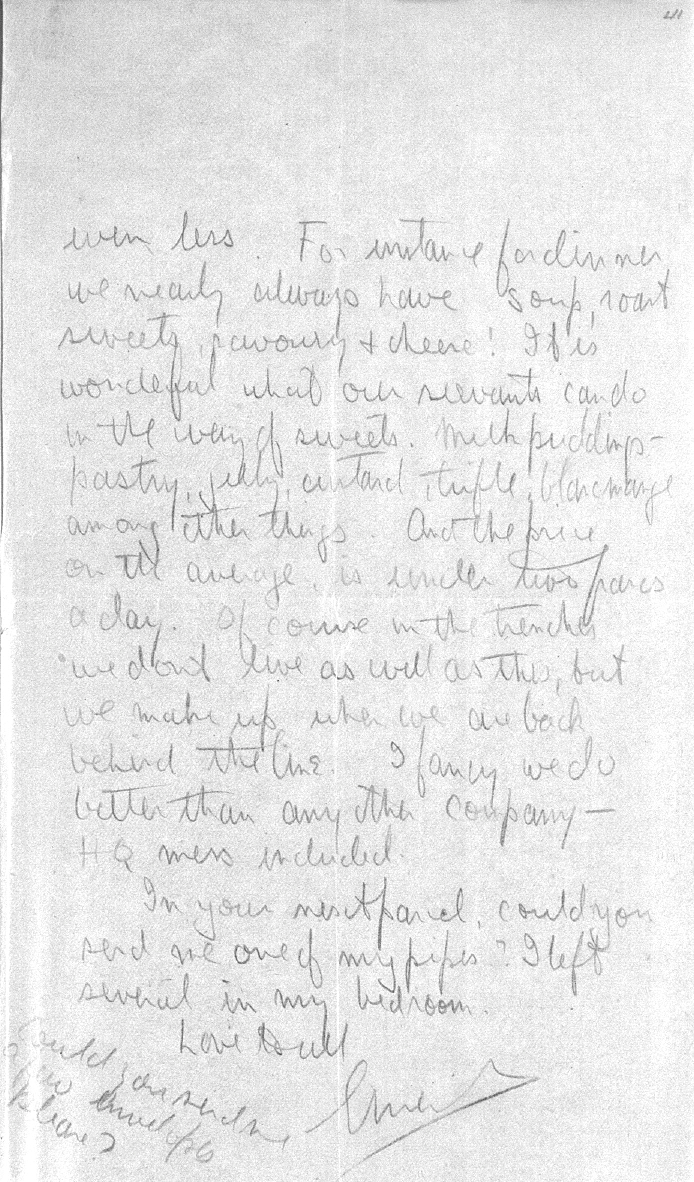 even less. For instance for dinner
we nearly always have soup, roast
sweets, savoury & cheese! It is
wonderful what our servants can do
in the way of sweets. Milk puddings -
pastry, jelly, custard, trifle, blancmange
among other things. And the price
on the average, is under two francs
a day. Of course in the trenches
we don't live as well as this, but
we make up when we are back
behind the line. I fancy we do
better than any other company —
HQ mess included.
In your next parcel, could you
send me one of my pipes? I left
several in my bedroom.
Love to all
Could you send me
a few envelopes
please?